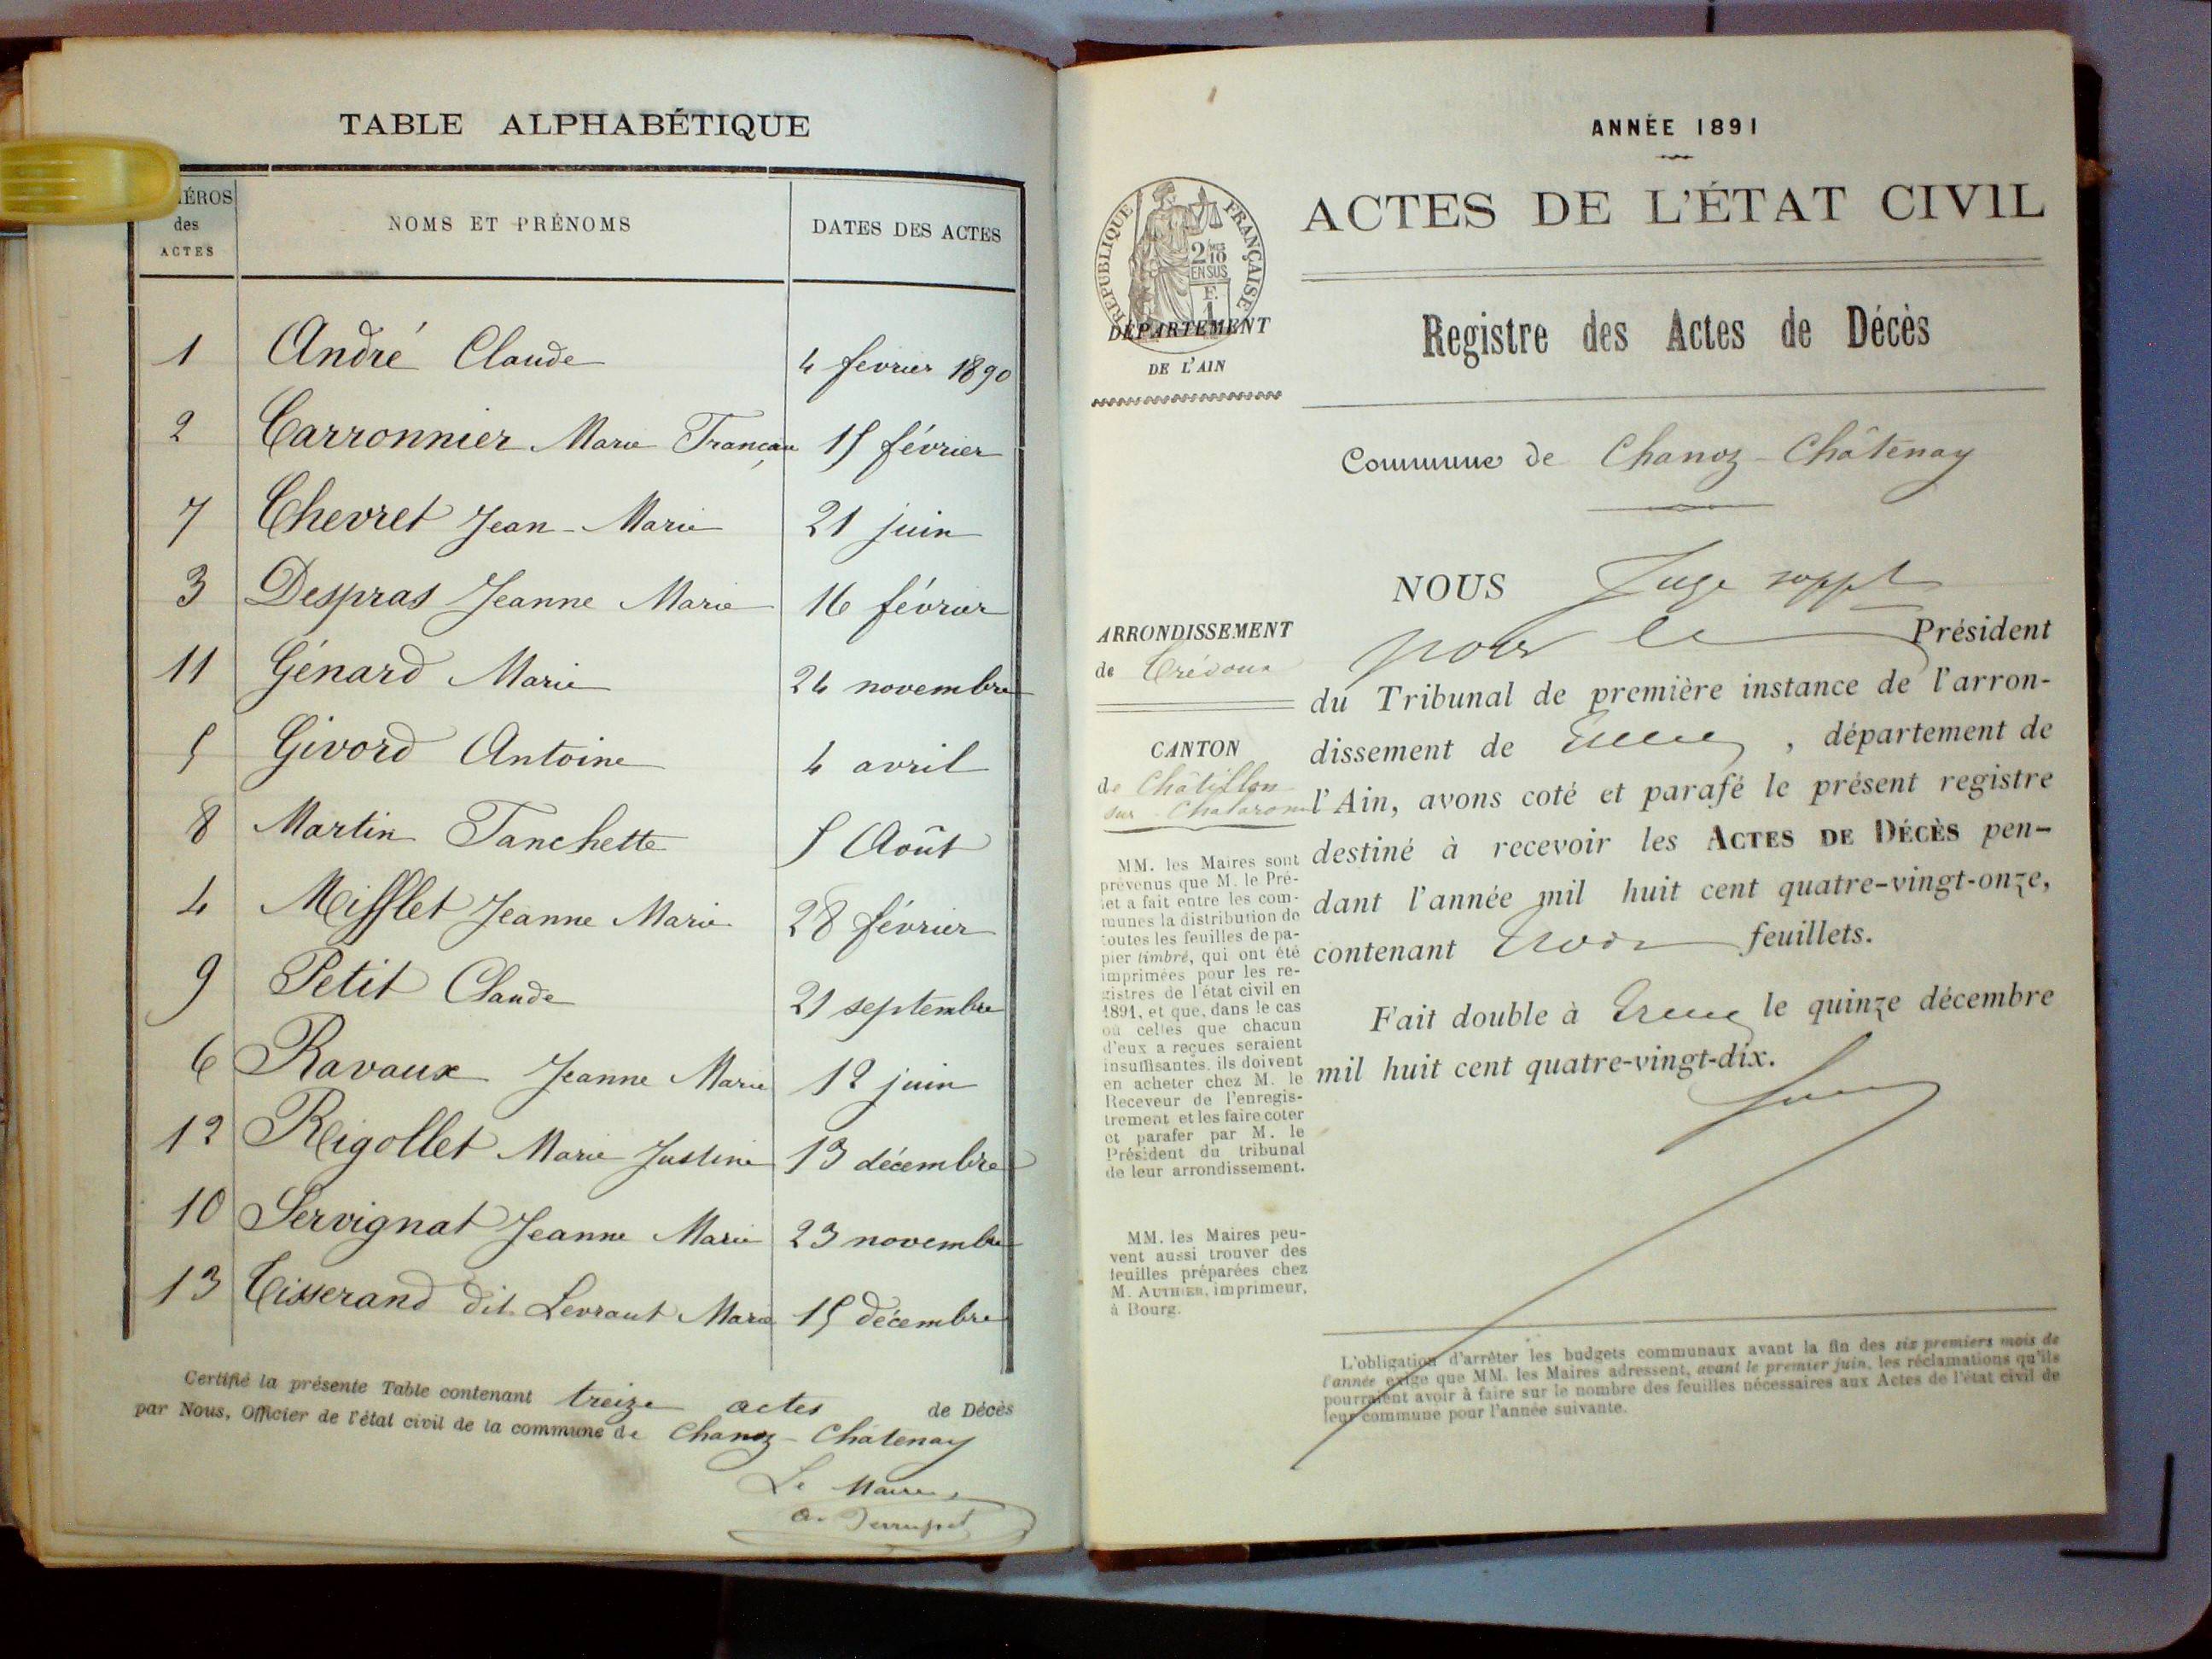 TABLE ALPHABÉTIQUE
ÉROS
des
ACTES
NOMS ET PRÉNOMS
DATES DES ACTES
1 André Claude 4 fevrier 1890
2 Carronnier Marie 15 février
7 Chevret Jean-Marie 21 juin
3 Despras Jeanne Marie 16 février
11 Génard Marie 24 novembre
5 Givord Antoine 4 avril
8 Martin Fanchette 5 Août
4 Mifflet Jeanne Marie 28 février
9 Petit Claude 21 septembre
6 Ravaux Jeanne Marie 12 juin
12 Rigollet Marie Justine 13 décembre
10 Servignat Jeanne Marie 23 novembre
13 Tisserand dit Levraut Marie 15 décembre
Certifié la présente Table contenant treize actes de Décès
par Nous, Officier de l'état civil de la commune de Chanoz-Châtenay
Le Maire
ANNÉE 1891
ACTES DE L'ÉTAT CIVIL
RÉPUBLIQUE FRANÇAISE
2/10
EN SUS
F.
1
DÉPARTEMENT
DE L'AIN
Registre des Actes de Décès
Commune de Chanoz-Châtenay
ARRONDISSEMENT
de Trévoux
CANTON
de Châtillon
sur Chalaronne
MM. les Maires sont
prévenus que M. le Pré-
fet a fait entre les com-
munes la distribution de
toutes les feuilles de pa-
pier timbré, qui ont été
imprimées pour les re-
gistres de l'état civil en
1891, et que, dans le cas
où celles que chacun
d'eux a reçues seraient
insuffisantes, ils doivent
en acheter chez M. le
Receveur de l'enregis-
trement et les faire coter
et parafer par M. le
Président du tribunal
de leur arrondissement.
MM. les Maires peu-
vent aussi trouver des
feuilles préparées chez
M. AUTHIER, imprimeur,
à Bourg.
NOUS Juge suppt
pour le Président
du Tribunal de première instance de l'arron-
dissement de , département de
l'Ain, avons coté et parafé le présent registre
destiné à recevoir les ACTES DE DÉCÈS pen-
dant l'année mil huit cent quatre-vingt-onze,
contenant trois feuillets.
Fait double à le quinze décembre
mil huit cent quatre-vingt-dix.
L'obligation d'arrêter les budgets communaux avant la fin des six premiers mois de
l'année exige que MM. les Maires adressent, avant le premier juin, les réclamations qu'ils
pourraient avoir à faire sur le nombre des feuilles nécessaires aux Actes de l'état civil de
leur commune pour l'année suivante.